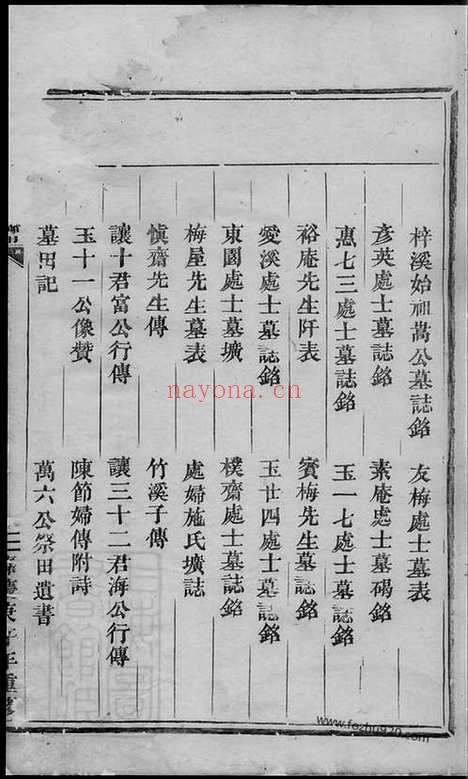 梓溪始祖萬公墓誌銘　友梅處士墓表
彥英處士墓誌銘　素庵處士墓碣銘
惠七三處士墓誌銘　玉一七處士墓誌銘
裕庵先生阡表　賓梅先生墓誌銘
愛溪處士墓誌銘　玉廿四處士墓誌銘
東園處士墓壙　樸齋處士墓誌銘
梅屋先生墓表　處婦施氏壙誌
慎齋先生傳　竹溪子傳
讓十君富公行傳　讓三十二君海公行傳
玉十一公像贊　陳節婦傳附詩
墓田記　萬六公祭田遺書
nayona.cn
www.fozhu920.com